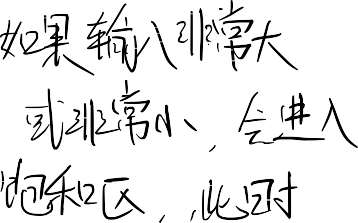 如果输入非常大
或非常小、会进入
饱和区，此时